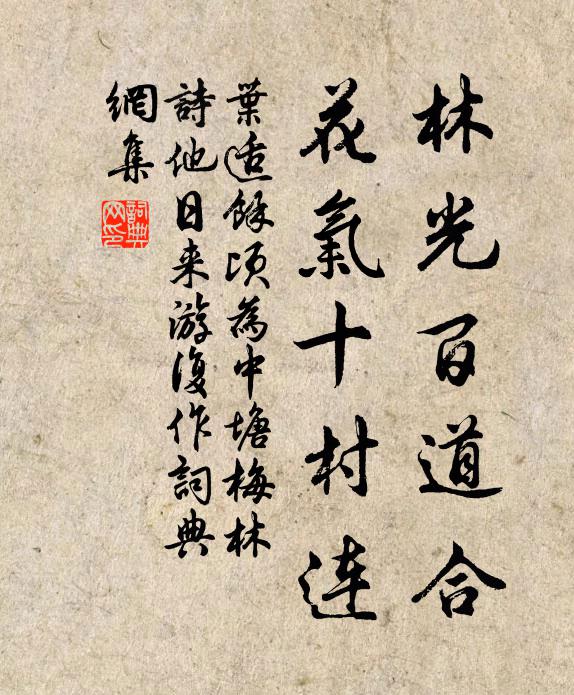 林光百道合
花氣十村連
葉适餘頃為中塘梅林
詩他日来游復作詞典
網集
詞典
网印